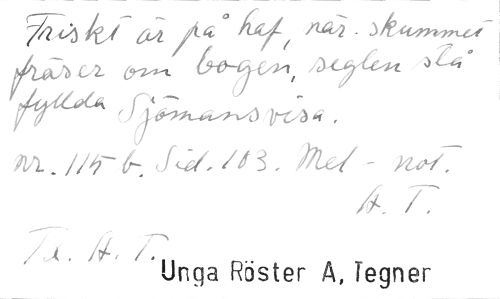 Friskt är på haf, när skummet
fräser om bogen, seglen stå
fyllda Sjömansvisa.
nr. 115 b. Sid. 103. Mel - not.
A. T.
Tr. A. T.
Unga Röster A, Tegner